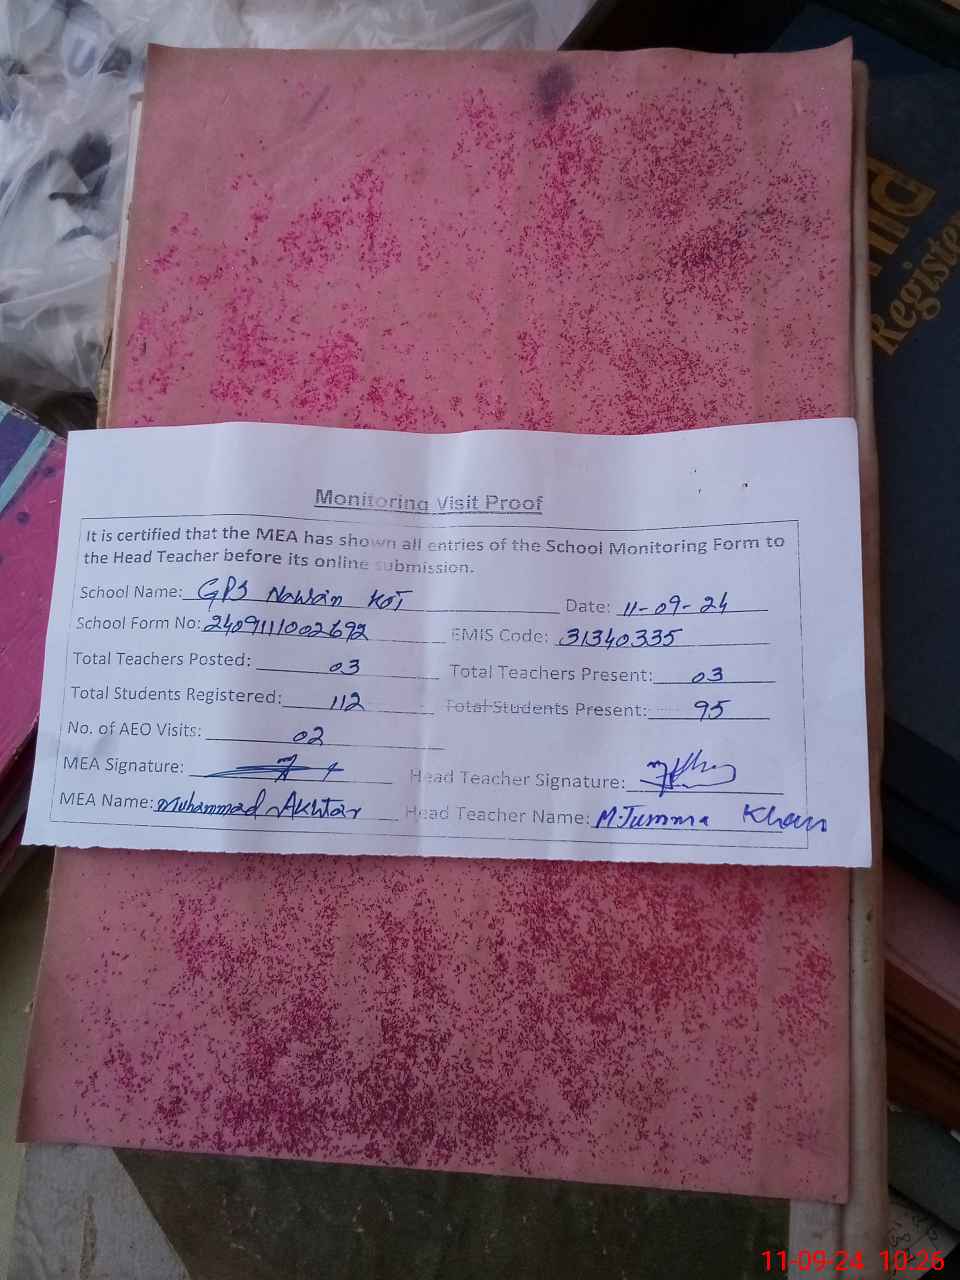 Register
Monitoring Visit Proof
It is certified that the MEA has shown all entries of the School Monitoring Form to
the Head Teacher before its online submission.
School Name: GPS Nawan Kot Date: 11-09-24
School Form No: 2409111002692 EMIS Code: 31340335
Total Teachers Posted: 03 Total Teachers Present: 03
Total Students Registered: 112 Total Students Present: 95
No. of AEO Visits: 02
MEA Signature: Head Teacher Signature:
MEA Name: Muhammad Akhtar Head Teacher Name: M. Jumma Khan
11-09-24 10:26